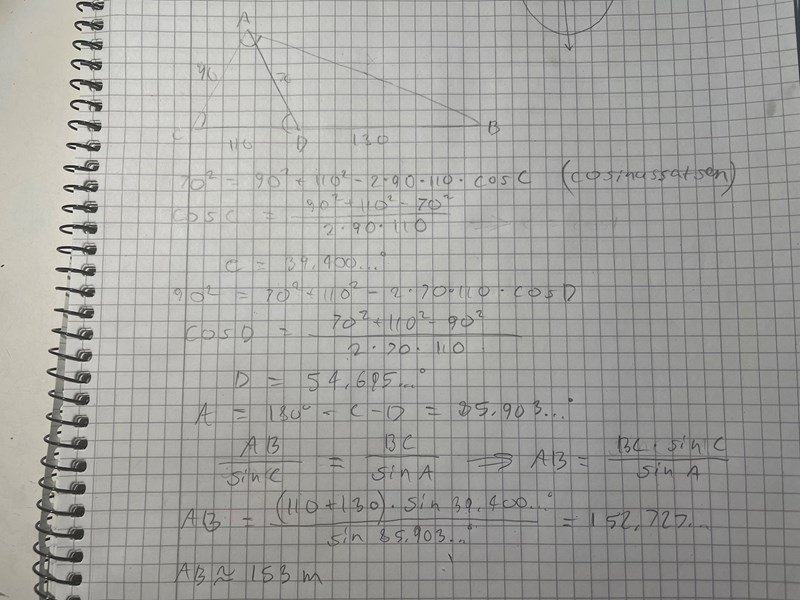 A
90
x
C
D
B
110
130
70² = 90² + 110² - 2·90·110·cosC (cosinussatsen)
cosC = (90² + 110² - 70²) / (2·90·110)
C = 39,400...°
90² = 70² + 110² - 2·70·110·cosD
cosD = (70² + 110² - 90²) / (2·70·110)
D = 54,695...°
A = 180° - C - D = 85,903...°
AB / sinC = BC / sinA ⇒ AB = BC·sinC / sinA
AB = (110 + 130)·sin 39,400...° / sin 85,903...° = 152,727...
AB ≈ 153 m